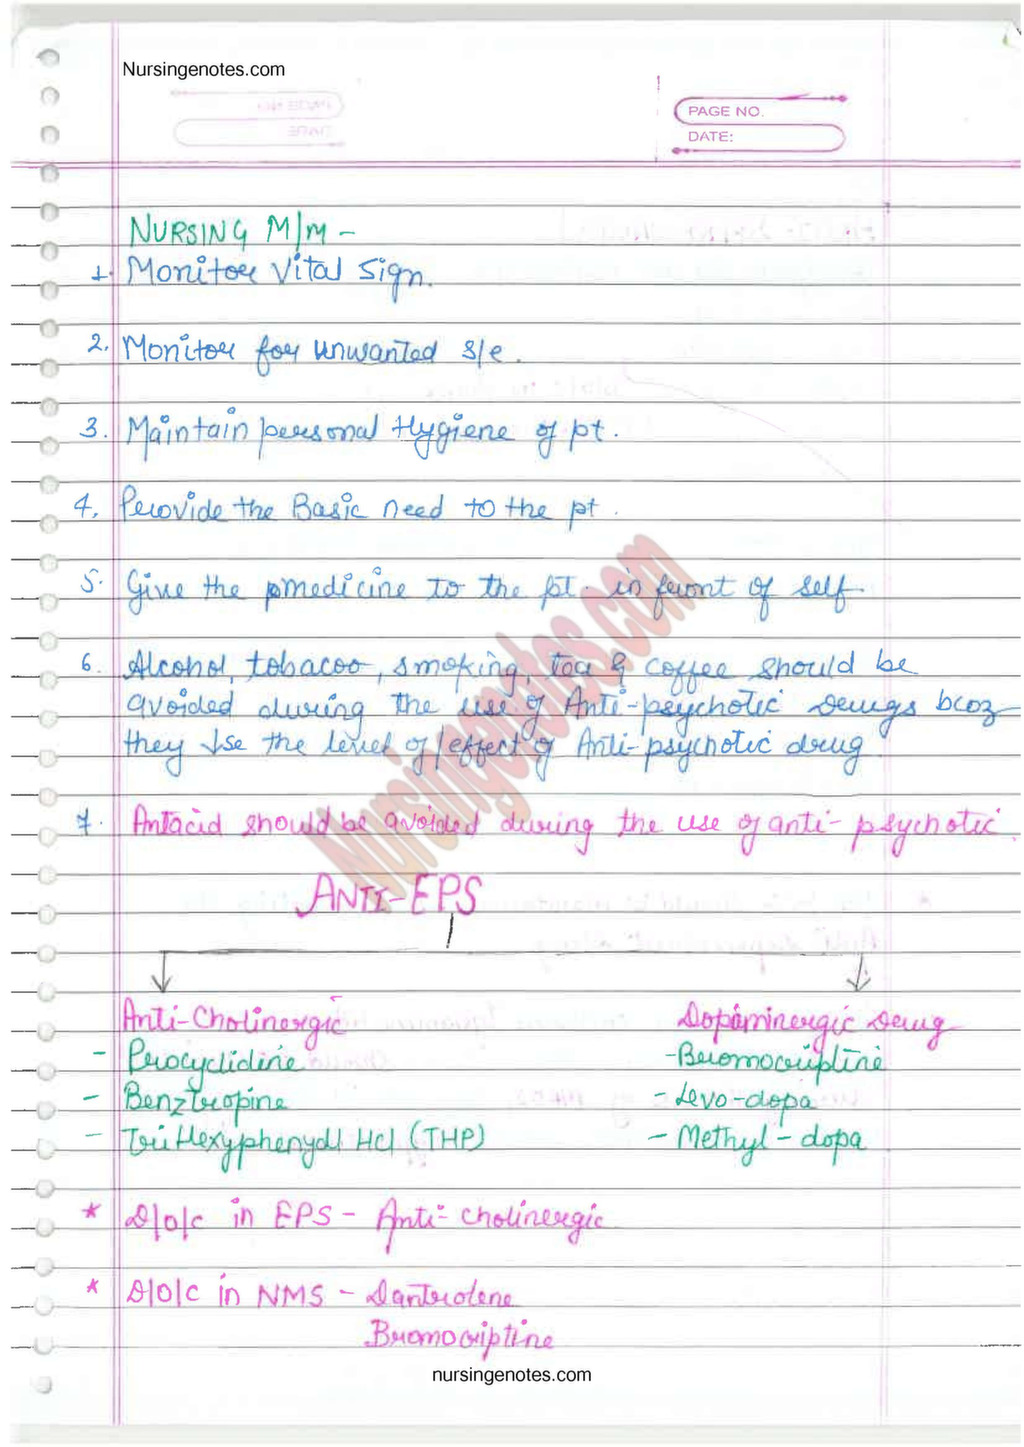 Nursingenotes.com
PAGE NO.
DATE:
NURSING M/m -
1. Monitor Vital Sign.
2. Monitor for unwanted s/e.
3. Maintain personal Hygiene of pt.
4. Provide the Basic need to the pt.
5. Give the medicine to the pt. in front of self.
6. Alcohol, tobacoo, smoking, tea & coffee should be
avoided during the use of Anti-psychotic drugs bcoz
they ↓se the level of/effect of Anti-psychotic drug.
7. Antacid should be avoided during the use of anti-psychotic.
Nursingenotes.com
ANTI-EPS
Anti-Cholinergic Dopaminergic Drug
- Procyclidine - Bromocriptine
- Benztropine - Levo-dopa
- TriHexyphenydl Hcl (THP) - Methyl-dopa
* D/o/c in EPS - Anti-cholinergic
* D/O/C in NMS - Dantrolene
Bromocriptine
nursingenotes.com